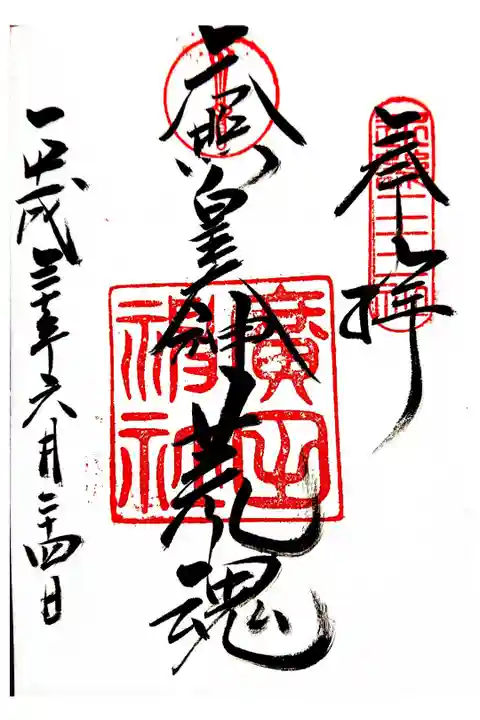 奉拝
天照皇荒魂
廣田
神社
平成三十年六月二十四日